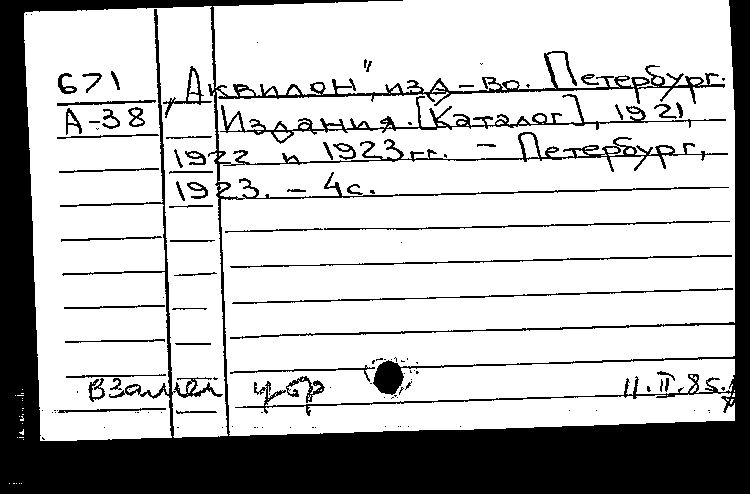 671 „Аквилон", изд-во. Петербург.
А-38 Издания. [Каталог], 1921,
1922 и 1923 гг. – Петербург,
1923. – 4 с.
взамен 11.II.85.